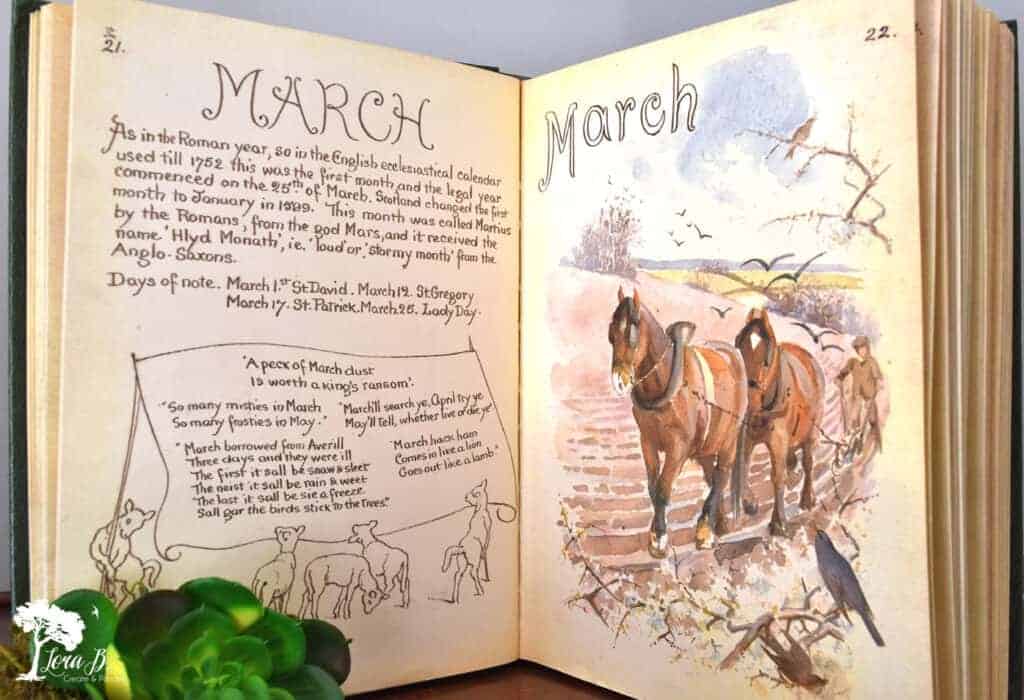 21.
MARCH
As in the Roman year, so in the English ecclesiastical calendar
used till 1752 this was the first month, and the legal year
commenced on the 25th of March. Scotland changed the first
month to January in 1599. This month was called Martius
by the Romans, from the god Mars, and it received the
name 'Hlyd Monath', i.e. 'loud' or 'stormy month' from the
Anglo-Saxons.
Days of note. March 1st St David. March 12. St Gregory
March 17. St. Patrick. March 25. Lady Day.
'A peck of March dust
Is worth a king's ransom'.
"So many misties in March
So many frosties in May."
"March'll search ye, April try ye
May'll Tell, whether live or die ye"
"March borrowed from Averill
Three days and they were ill
The first it sall be snaw & sleet
The neist it sall be rain & weet
The last it sall be sic a freeze
Sall gar the birds stick to the Trees."
"March hack ham
Comes in like a lion
Goes out like a lamb"
22.
March
Lora B
Create &